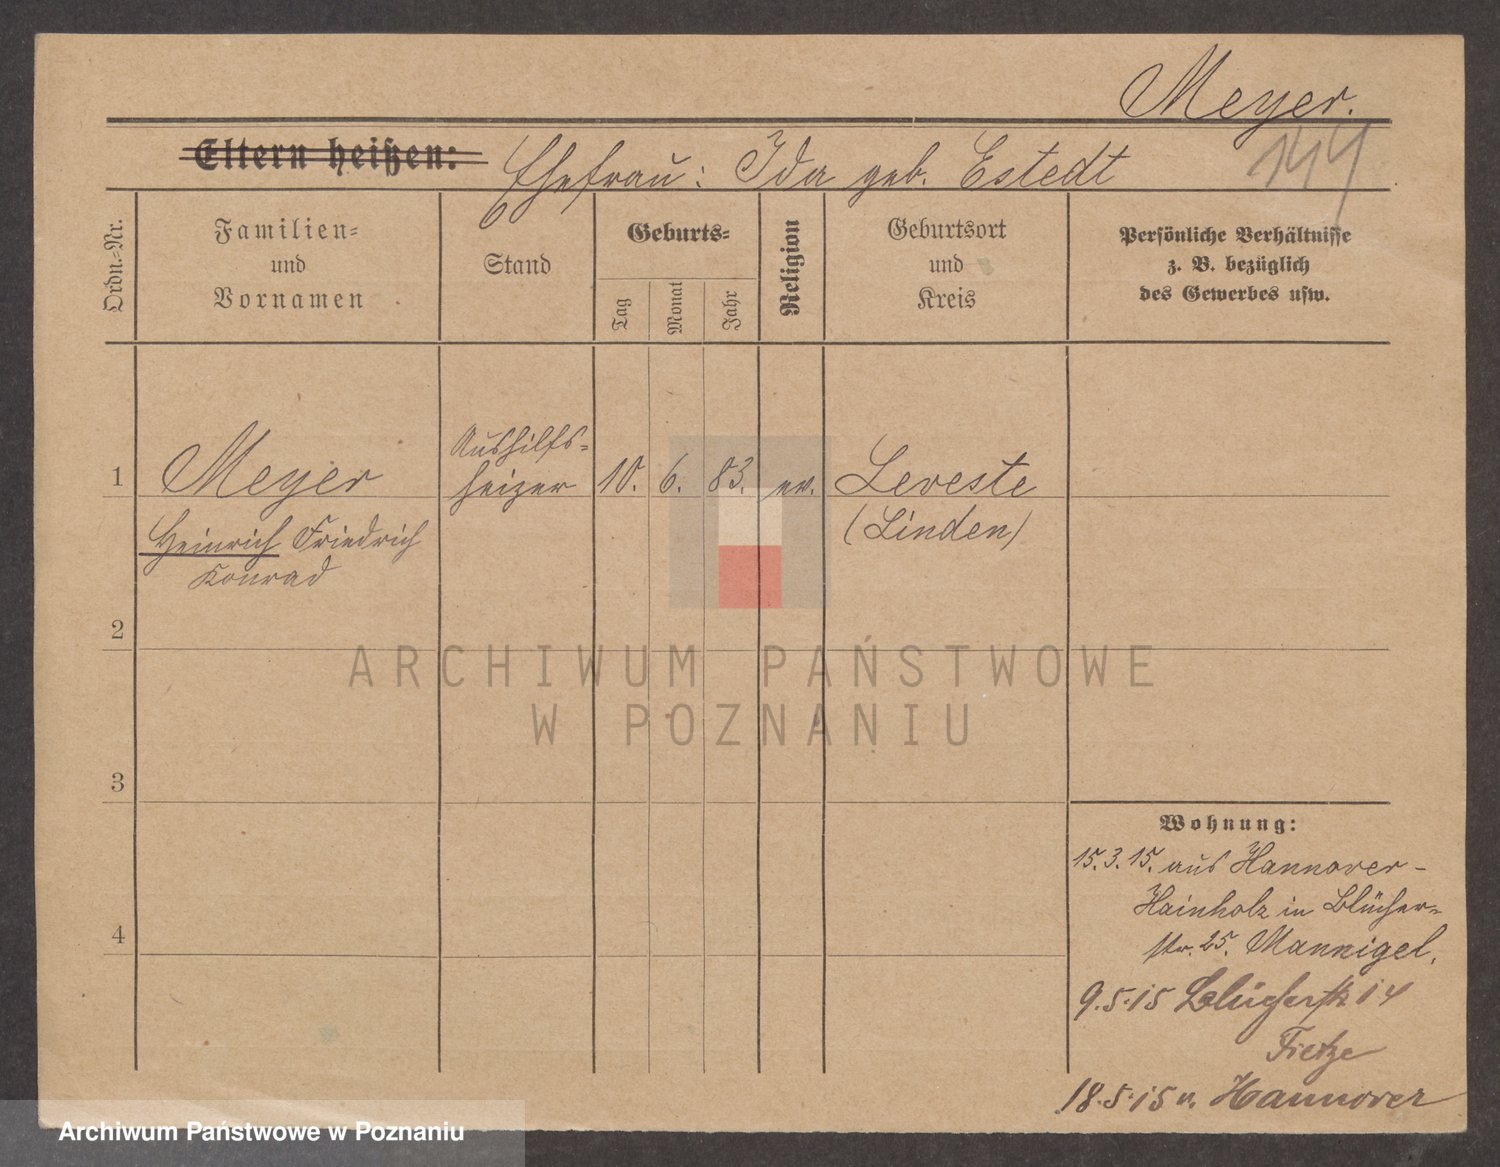 Meyer.
144
Eltern heißen: Ehefrau: Ida geb. Estedt
Ordn.-Nr.
Familien-
und
Vornamen
Stand
Geburts-
Tag
Monat
Jahr
Religion
Geburtsort
und
Kreis
Persönliche Verhältnisse
z. B. bezüglich
des Gewerbes usw.
1
Meyer
Heinrich Friedrich
Konrad
Aushilfs-
heizer
10. 6. 83. ev.
Leveste
(Linden)
2
3
4
Wohnung:
15.3.15. aus Hannover-
Hainholz in Blücher-
str. 25. Mannigel.
9.5.15 Blücherstr 14
Fietze
18.5.15 n. Hannover
ARCHIWUM PAŃSTWOWE
W POZNANIU
Archiwum Państwowe w Poznaniu